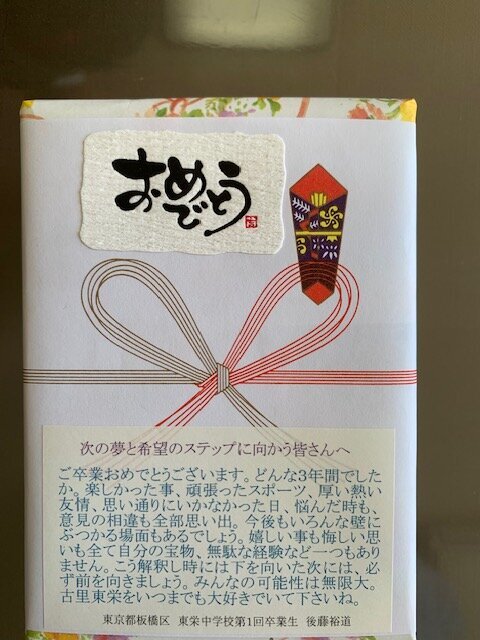 おめでとう
次の夢と希望のステップに向かう皆さんへ
ご卒業おめでとうございます。どんな3年間でした
か。楽しかった事、頑張ったスポーツ、厚い熱い
友情、思い通りにいかなかった日、悩んだ時も、
意見の相違も全部思い出。今後もいろんな壁に
ぶつかる場面もあるでしょう。嬉しい事も悔しい思
いも全て自分の宝物、無駄な経験など一つもあり
ません。こう解釈し時には下を向いた次には、必
ず前を向きましょう。みんなの可能性は無限大。
古里東栄をいつまでも大好きでいて下さいね。
東京都板橋区 東栄中学校第1回卒業生 後藤裕道